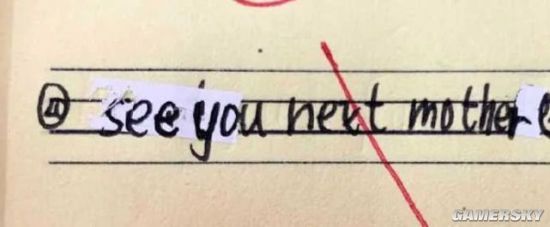 ④ see you next mother
GAMERSKY